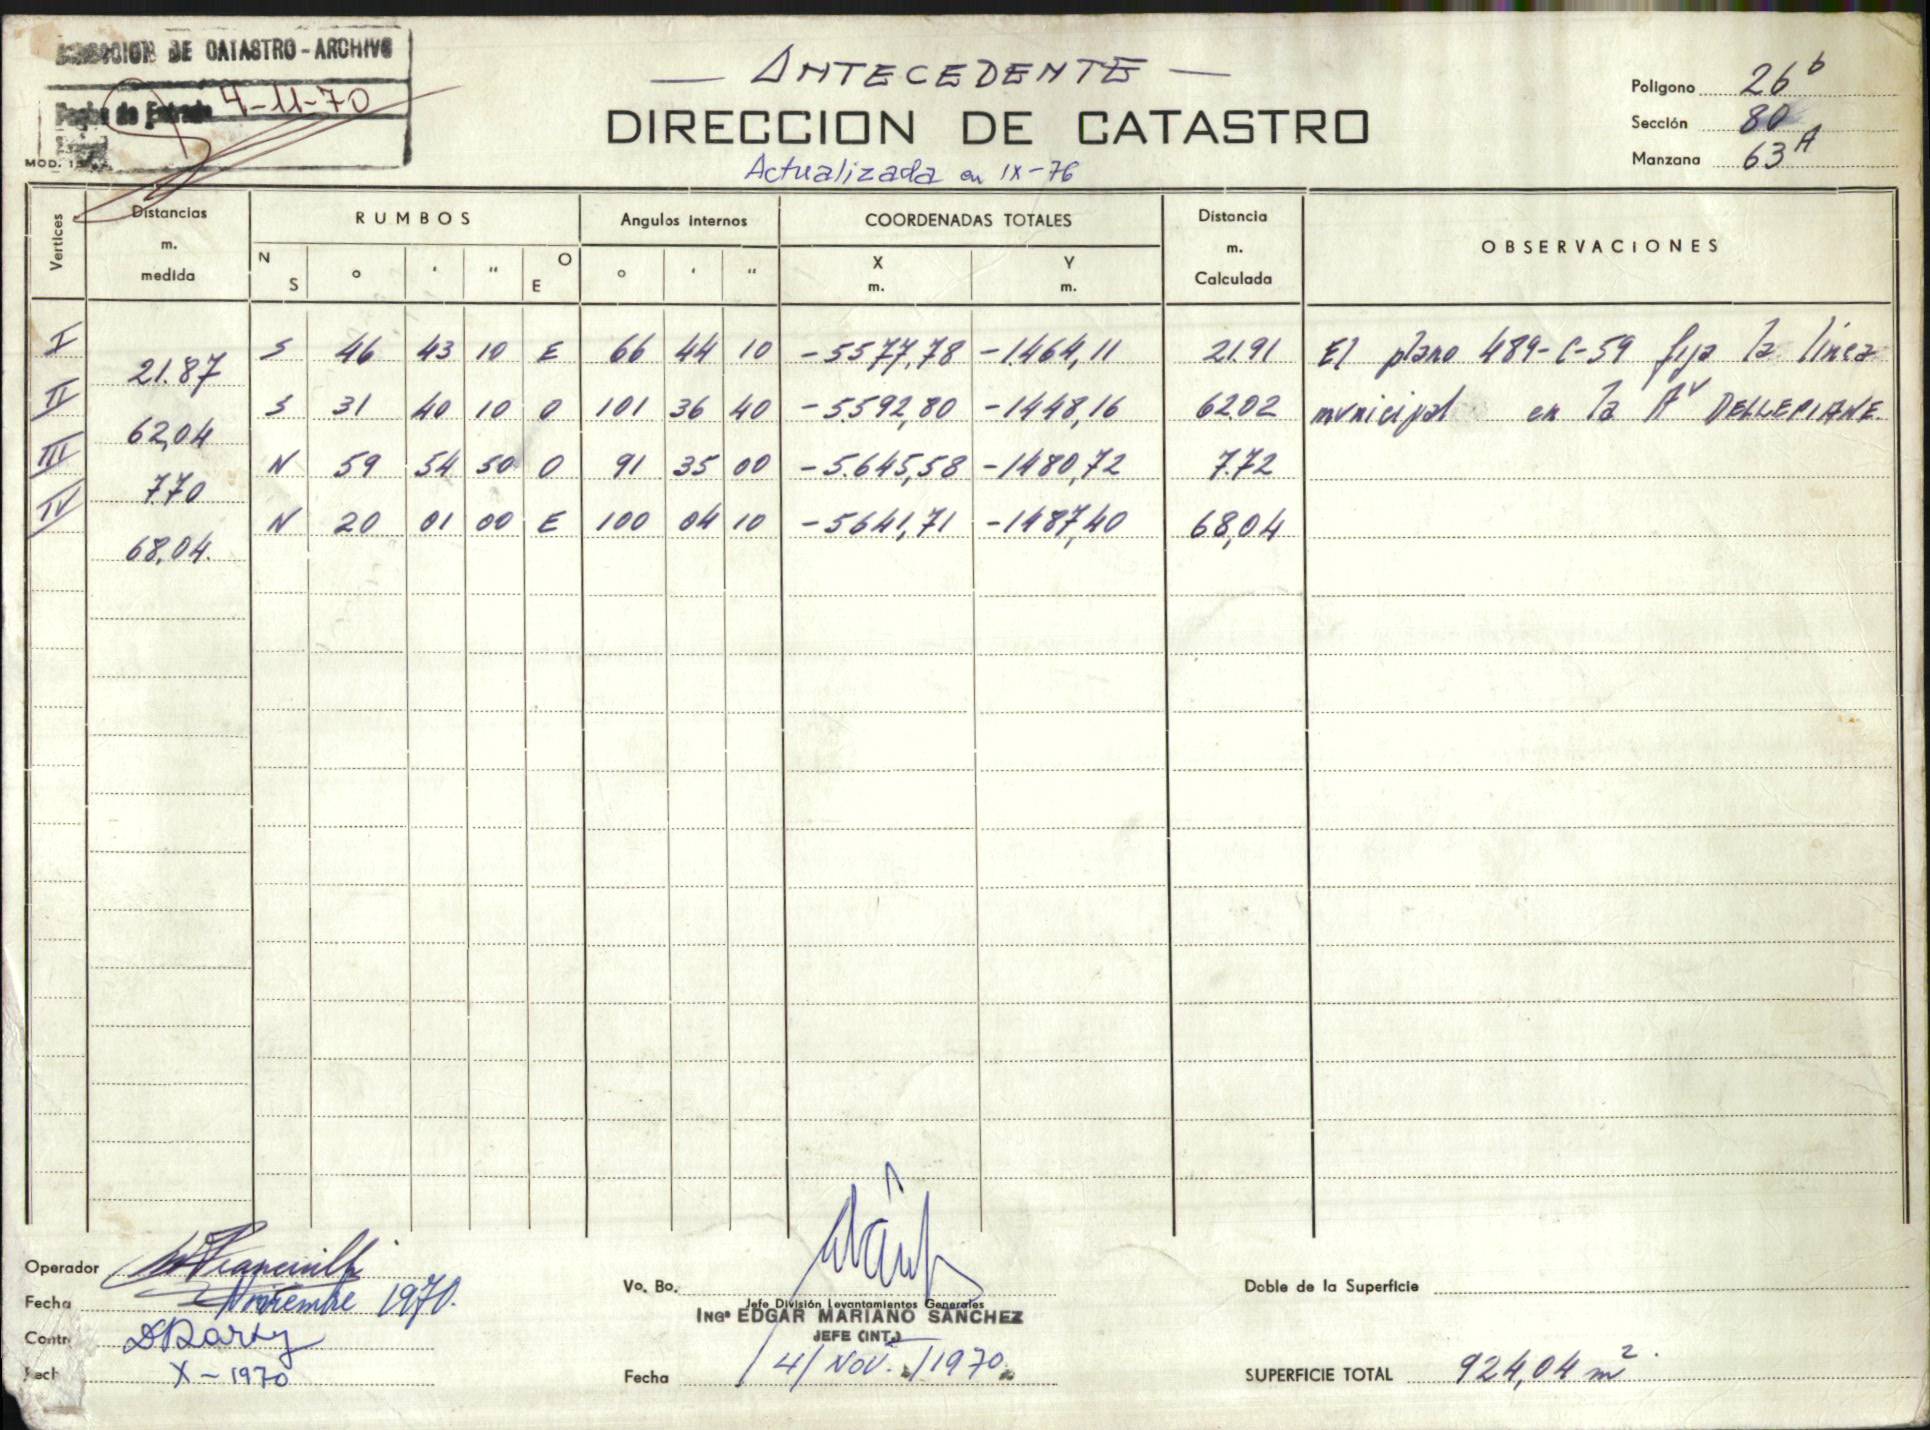 DIRECCION DE CATASTRO - ARCHIVO
Fecha de Entrada 4-11-70
MOD.
— ANTECEDENTE —
DIRECCION DE CATASTRO
Actualizada en IX-76
Poligono 26 b
Sección 80
Manzana 63 A
Vertices Distancias m. medida RUMBOS Angulos internos COORDENADAS TOTALES Distancia m. Calculada OBSERVACIONES
N S ° ' " O E ° ' " X m. Y m.
I S 46 43 10 E 66 44 10 -5577,78 -1464,11 21.91 El plano 489-C-59 fija la línea
21.87
II S 31 40 10 O 101 36 40 -5592,80 -1448,16 62.02 municipal en la Av DELLEPIANE.
62,04
III N 59 54 50 O 91 35 00 -5.645,58 -1480,72 7.72
770
IV N 20 01 00 E 100 04 10 -5641,71 -1487,40 68,04
68,04.
Operador
Fecha Noviembre 1970.
Contr
Fech X-1970
Vo. Bo.
Jefe División Levantamientos Generales
INGº EDGAR MARIANO SANCHEZ
JEFE (INT.)
Fecha 4/ NOV. /1970.
Doble de la Superficie
SUPERFICIE TOTAL 924,04 m².